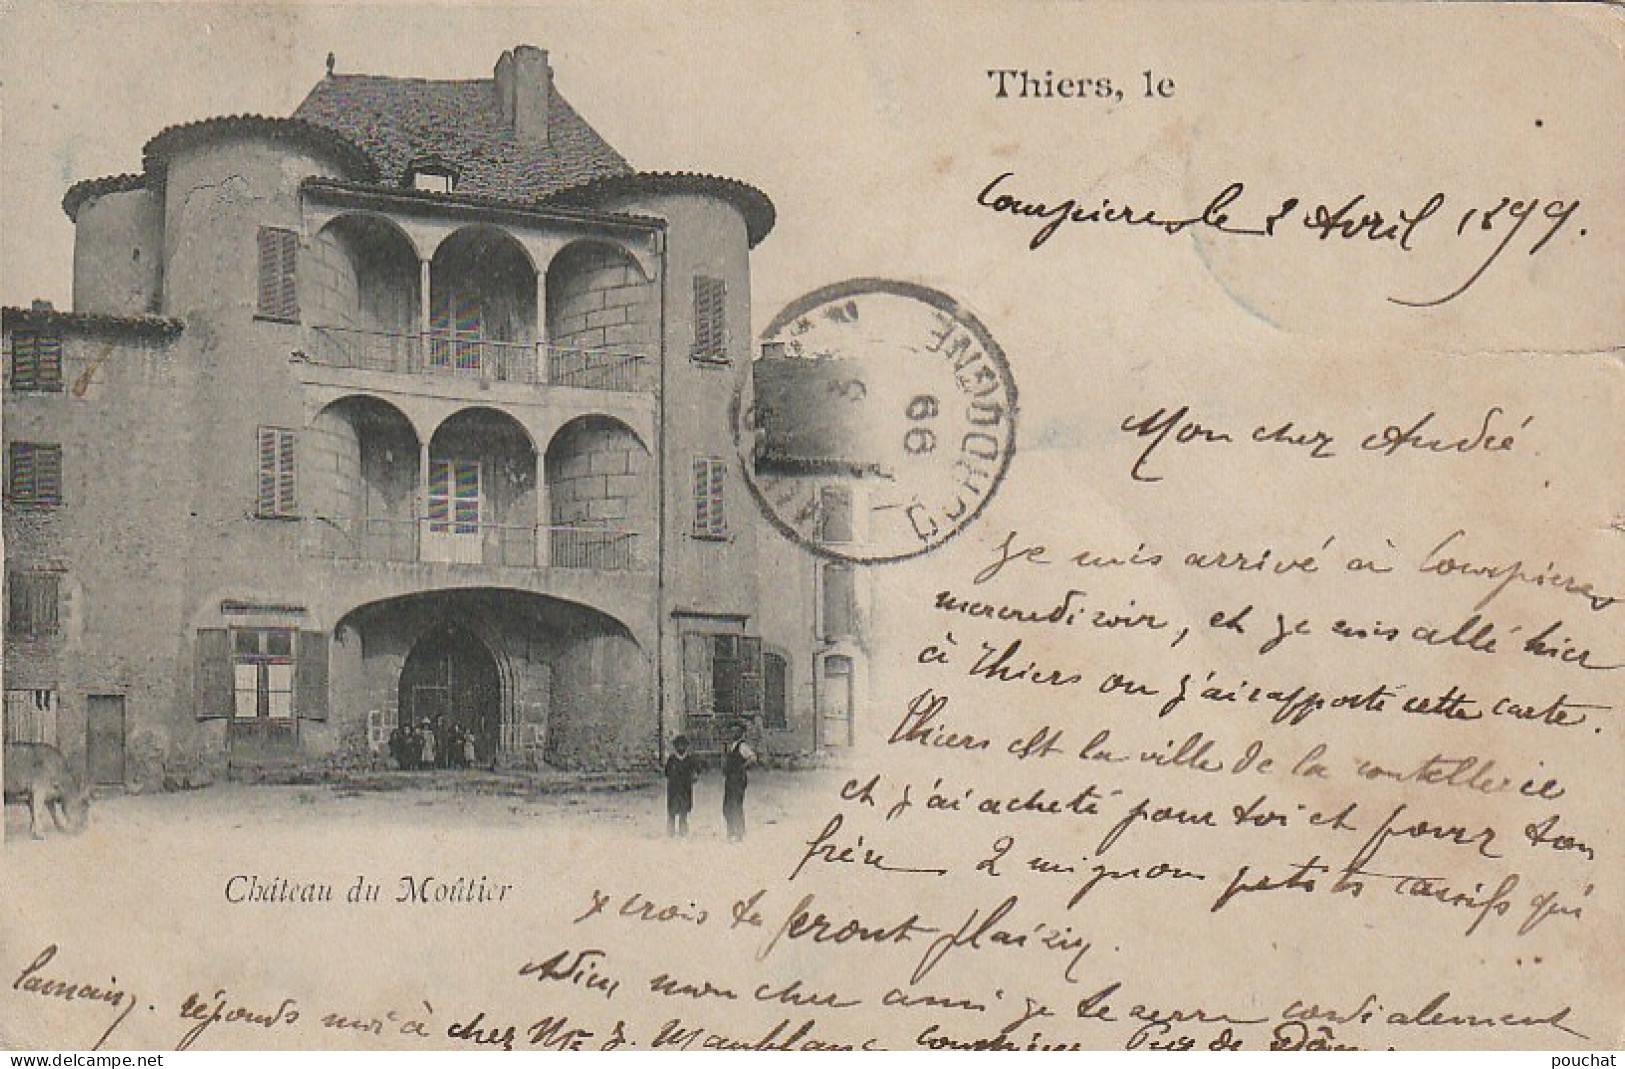 Thiers, le
Courpière le 2 Avril 1899.
Mon cher André.
Je suis arrivé à Courpière
mercredi soir, et je suis allé hier
à Thiers ou j'ai rapporté cette carte.
Thiers est la ville de la coutellerie
et j'ai acheté pour toi et pour ton
frère 2 mignons petits canifs qui
je crois te feront plaisir.
Adieu mon cher ami je te serre cordialement
la main. réponds moi à chez Mr J. Maublanc Courpière Puy de Dôme
Château du Moûtier
DORDOGNE
3
99
pouchat